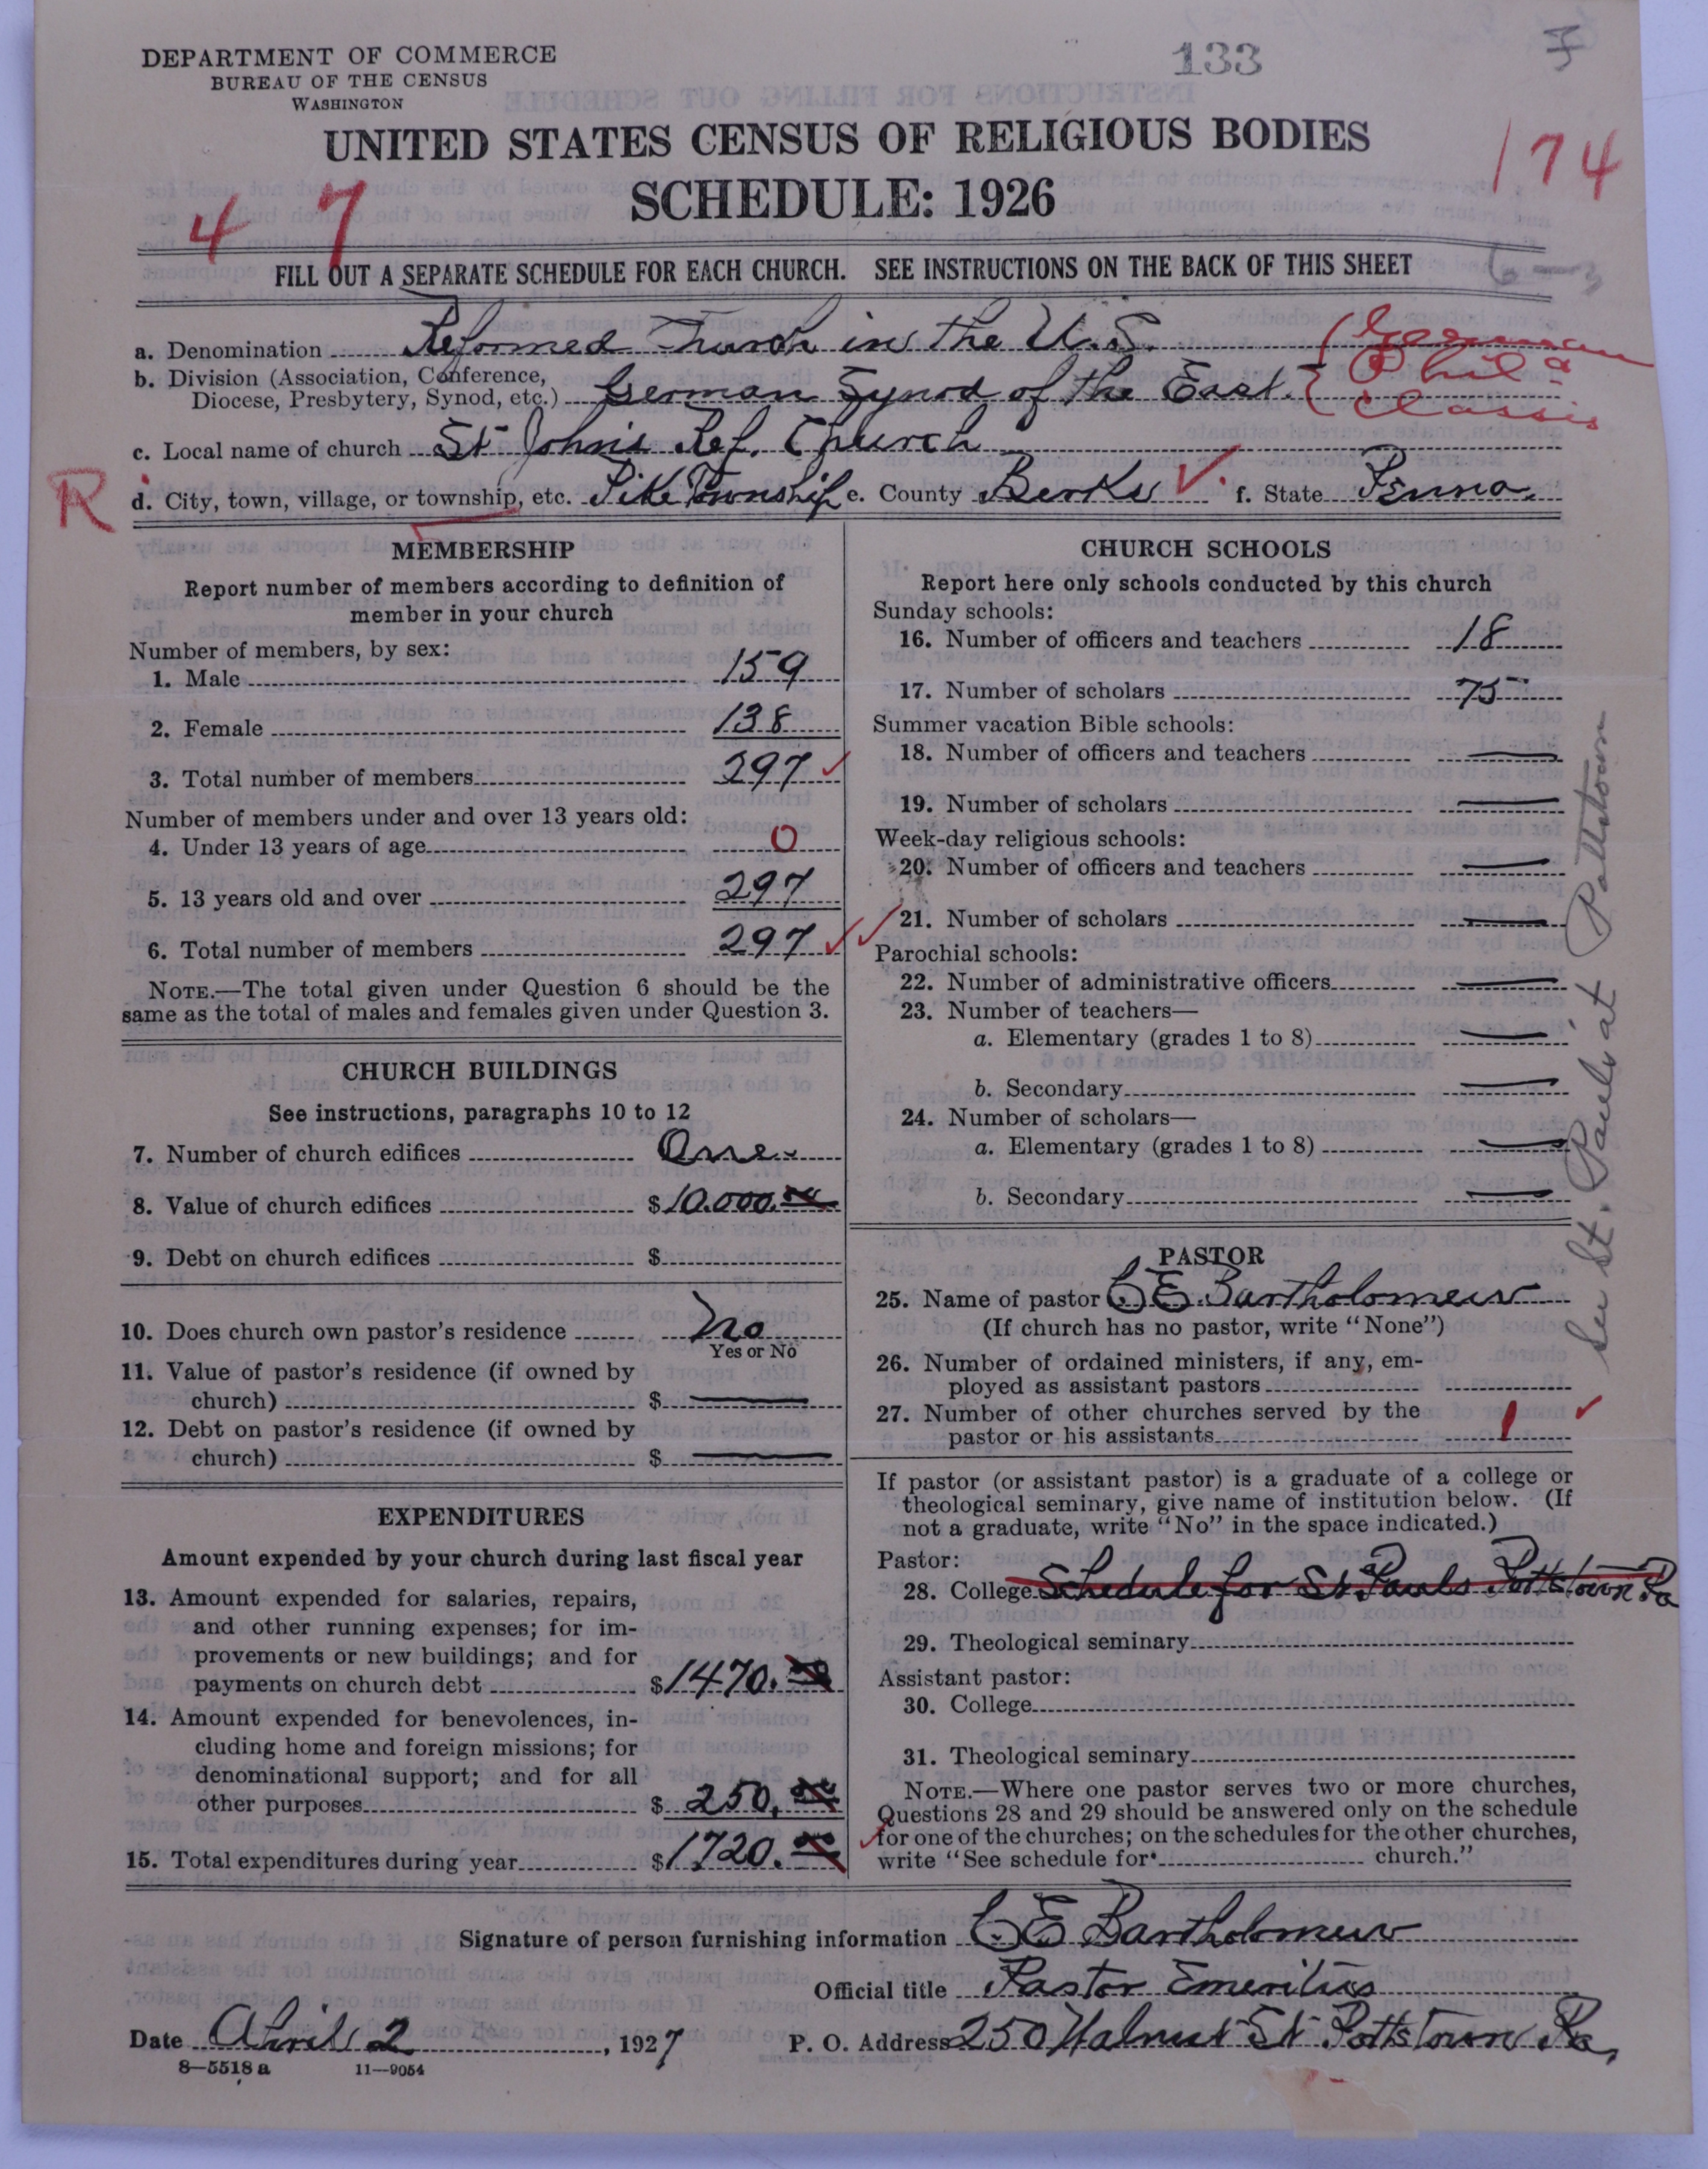 DEPARTMENT OF COMMERCE
BUREAU OF THE CENSUS
WASHINGTON
133
UNITED STATES CENSUS OF RELIGIOUS BODIES
SCHEDULE: 1926
47
174
FILL OUT A SEPARATE SCHEDULE FOR EACH CHURCH. SEE INSTRUCTIONS ON THE BACK OF THIS SHEET
a. Denomination Reformed Church in the U.S. (German
b. Division (Association, Conference, Diocese, Presbytery, Synod, etc.) German Synod of the East. { Phila Classis
c. Local name of church St Johns Ref. Church
R
d. City, town, village, or township, etc. Pike Township e. County Berks f. State Penna.
MEMBERSHIP
Report number of members according to definition of
member in your church
Number of members, by sex:
1. Male 159
2. Female 138
3. Total number of members 297
Number of members under and over 13 years old:
4. Under 13 years of age 0
5. 13 years old and over 297
6. Total number of members 297
NOTE.—The total given under Question 6 should be the
same as the total of males and females given under Question 3.
CHURCH BUILDINGS
See instructions, paragraphs 10 to 12
7. Number of church edifices One
8. Value of church edifices $10.000.
9. Debt on church edifices $
10. Does church own pastor's residence No
Yes or No
11. Value of pastor's residence (if owned by
church) $
12. Debt on pastor's residence (if owned by
church) $
EXPENDITURES
Amount expended by your church during last fiscal year
13. Amount expended for salaries, repairs,
and other running expenses; for im-
provements or new buildings; and for
payments on church debt $1470.
14. Amount expended for benevolences, in-
cluding home and foreign missions; for
denominational support; and for all
other purposes $ 250.
15. Total expenditures during year $1720.
CHURCH SCHOOLS
Report here only schools conducted by this church
Sunday schools:
16. Number of officers and teachers 18
17. Number of scholars 75
Summer vacation Bible schools:
18. Number of officers and teachers
19. Number of scholars
Week-day religious schools:
20. Number of officers and teachers
21. Number of scholars
Parochial schools:
22. Number of administrative officers
23. Number of teachers—
a. Elementary (grades 1 to 8)
b. Secondary
24. Number of scholars—
a. Elementary (grades 1 to 8)
b. Secondary
See St. Pauls at Pottstown
PASTOR
25. Name of pastor C E Bartholomew
(If church has no pastor, write "None")
26. Number of ordained ministers, if any, em-
ployed as assistant pastors
27. Number of other churches served by the
pastor or his assistants 1
If pastor (or assistant pastor) is a graduate of a college or
theological seminary, give name of institution below. (If
not a graduate, write "No" in the space indicated.)
Pastor:
28. College Schedule for St Pauls Pottstown Pa
29. Theological seminary
Assistant pastor:
30. College
31. Theological seminary
NOTE.—Where one pastor serves two or more churches,
Questions 28 and 29 should be answered only on the schedule
for one of the churches; on the schedules for the other churches,
write "See schedule for church."
Signature of person furnishing information C E Bartholomew
Official title Pastor Emeritus
Date April 2, 1927 P. O. Address 250 Walnut St Pottstown Pa,
8—5518 a 11—9054